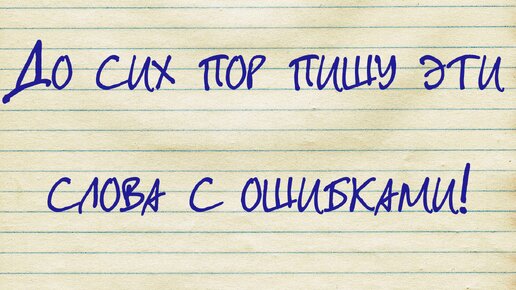 До сих пор пишу эти
слова с ошибками!